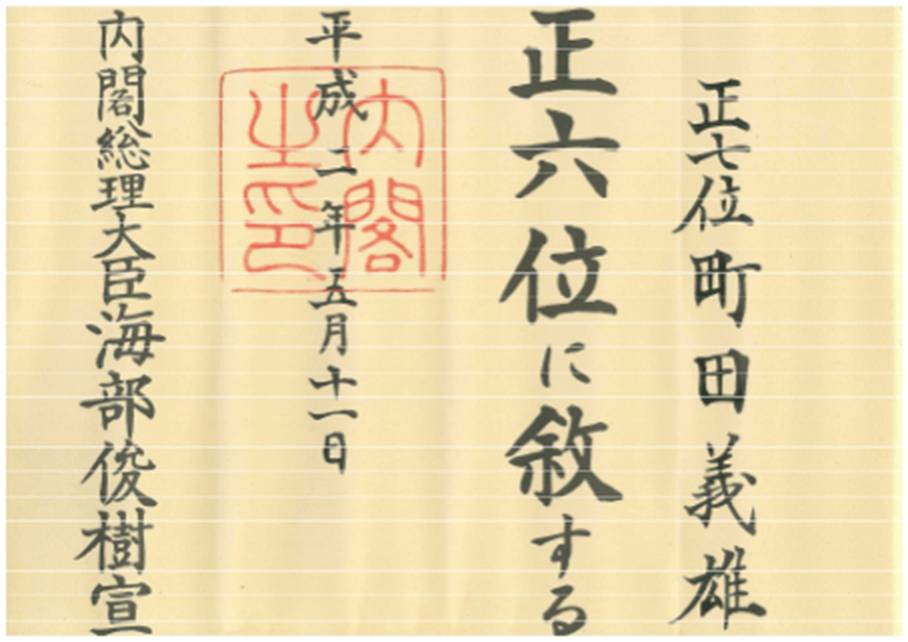 正七位町田義雄
正六位に敘する
平成二年五月十一日
内閣之印
内閣総理大臣海部俊樹宣